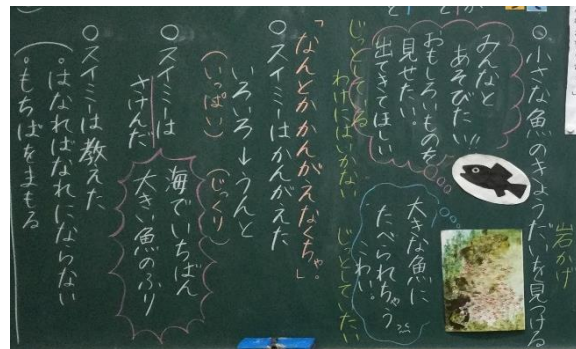 岩かげ
◎小さな魚のきょうだいを見つける
みんなと
あそびたい!!
おもしろいものを
見せたい。
出てきてほしい
大きな魚に
たべられちゃう
こわい。
じっとしている
わけにはいかない
じっとしてたい
「なんとかかんがえなくちゃ。」
○スイミーはかんがえた
いろいろ→うんと
(いっぱい)
(じっくり)
○スイミーは
さけんだ
海でいちばん
大きい魚のふり
○スイミーは教えた
。はなればなれにならない
。もちばをまもる